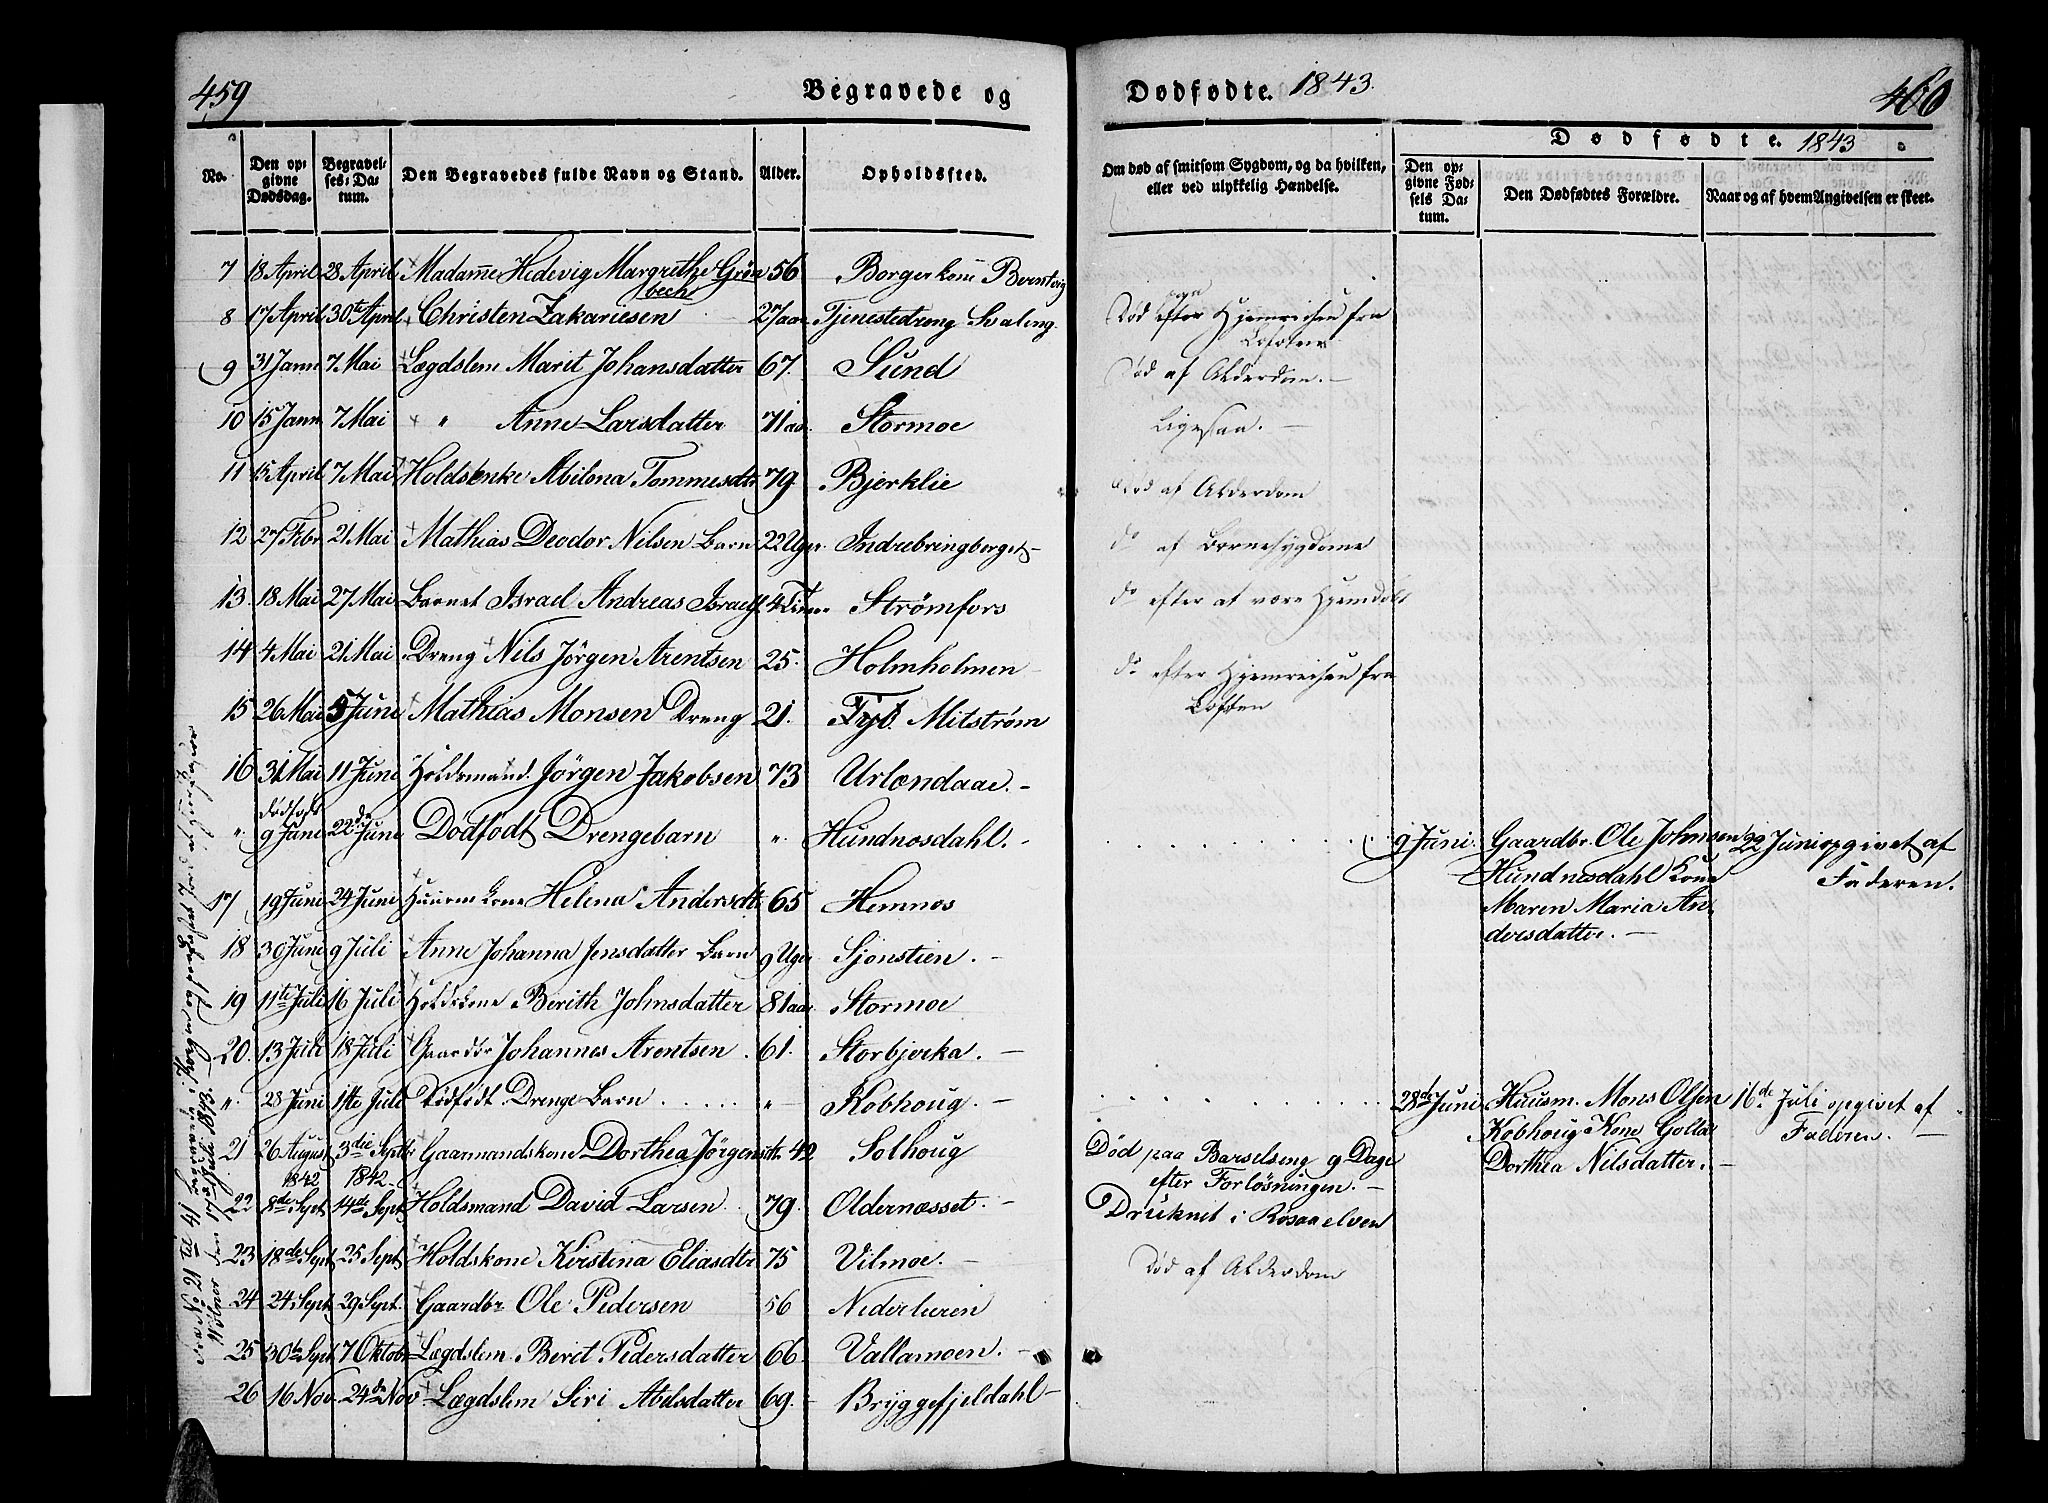 459
Begravede og
Dødfødte. 1843.
460
No.
Den opgivne Dødsdag.
Begravelses-Datum.
Den Begravedes fulde Navn og Stand.
Alder.
Opholdssted.
Om død af smitsom Sygdom, og da hvilken, eller ved ulykkelig Hændelse.
Dødfødte. 1843
Den opgivne Fødsels Datum.
Den Dødfødtes Forældre.
Naar og af hvem Angivelsen er skeet.
7 18 April 28 April Madame Hedevig Margrethe Grön 56 Borgerkone
bech
8 17 April 30te April Christen Zakariesen 27 aar Tjenestedreng Svaleng. Död efter Hjemreisen fra
Lofoten
9 31 Janr 7 Mai Lægdslem Marit Johansdatter 67. Sund Död af Alderdom. -
10 15 Janr 7 Mai " Anne Larsdatter 71 aar Stormoe Ligesaa. -
11 15 April 7 Mai Holdsenke Abilona Tommesdtr 79 Bjerklie Död af Alderdom
12 27 Febr 21 Mai Mathias Deodor Nilsen Barn 22 Uger. Indrebringberget - do af Bornesygdome
13. 18 Mai 27 Mai Barnet Israel Andreas Israels. 4 Timer Strømfors do efter at være Hjemdöbt
14 4 Mai 21 Mai Dreng Nils Jörgen Arentsen 25. Holmholmen do efter Hjemreisen fra
Lofoten
15 26 Mai 5 Juni Mathias Monsen Dreng 21. Mitstrøm
16 31 Mai 11 Juni Holdsmand. Jörgen Jakobsen 73 Urlændaae. -
Dödfödt
" 9 Juni 22de Juni Dodfodt Drengebarn " Hundnosdahl. - 9 Juni. Gaardbr. Ole Johnsen 22 Juni opgivet af
Hundnesdahl Kone Faderen.
Maren Maria An-
dersdatter. -
17 19 Juni 24 Juni Huusm Kone Helena Andersdtr 65 Hemnes
18 30 Juni 9 Juli Anne Johanna Jensdatter Barn 9 Uger Sjonstien. -
19 11te Juli 16 Juli Holdskone Berith Johnsdatter 81 aar Stormoe
20. 13 Juli 18 Juli Gaardbr Johannes Arentsen. 61. Storbjerka. -
" 28 Juni Juli Dödfödt Drenge Barn " Kobhoug. - 28de Juni Huusm. Mons Olsen 16de Juli opgivet af
Kobhoug Kone Faderen. -
Dorthea Nilsdatter. -
21 26 August 3die Septbr Gaarmandskone Dorthea Jörgensdtr. 42 Solhoug Död paa Barselseng 9 Dage
1842 1842 efter Forlösningen. -
22 8de Sept 14de Sept Holdsmand David Larsen 79. Oldernæsset. - Druknet i Rosaaelven
23 18de Sept 25 Sept Holdskone Kirstina Eliasdtr 75 Vilmoe. - Död af Alderdom
24 24 Sept 29 Sept. Gaardbr Ole Pedersen 56 Nederleeren
25 30te Sept 7 Oktobr Lægdslem. Berit Pedersdatter 66 Vallamoen. -
26 16 Nov. 24de Nov Lægdslem Siri Abelsdatter 69. Bryggefjeldahl -
Fra No 21 til 41 begravne i Korgen og forrettet Jord
den 17de Juli 1843. -